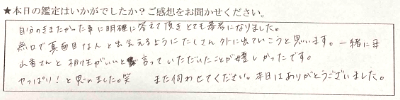 ★本日の鑑定はいかがでしたか？ご感想をお聞かせください。
自分のききたかった事に明確に答えて頂きとても参考になりました。
無口で真面目な人と出会えるようにたくさん外に出ていこうと思います。一緒に
さんと相性がいいと言っていただいたことが嬉しかったです。
やっぱり！と思いました。笑　また伺わせてください。本日はありがとうございました。